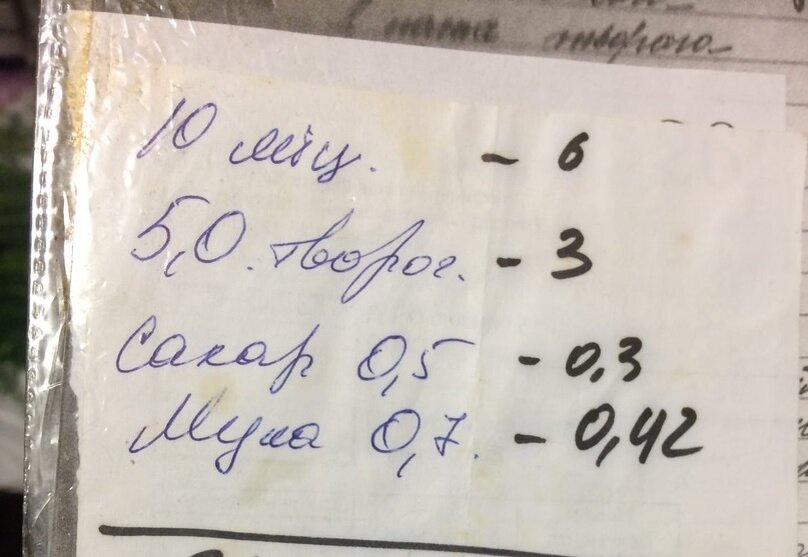 творога
10 яіц. - 6
5,0. творог. - 3
Сахар 0,5 - 0,3
Мука 0,7. - 0,42